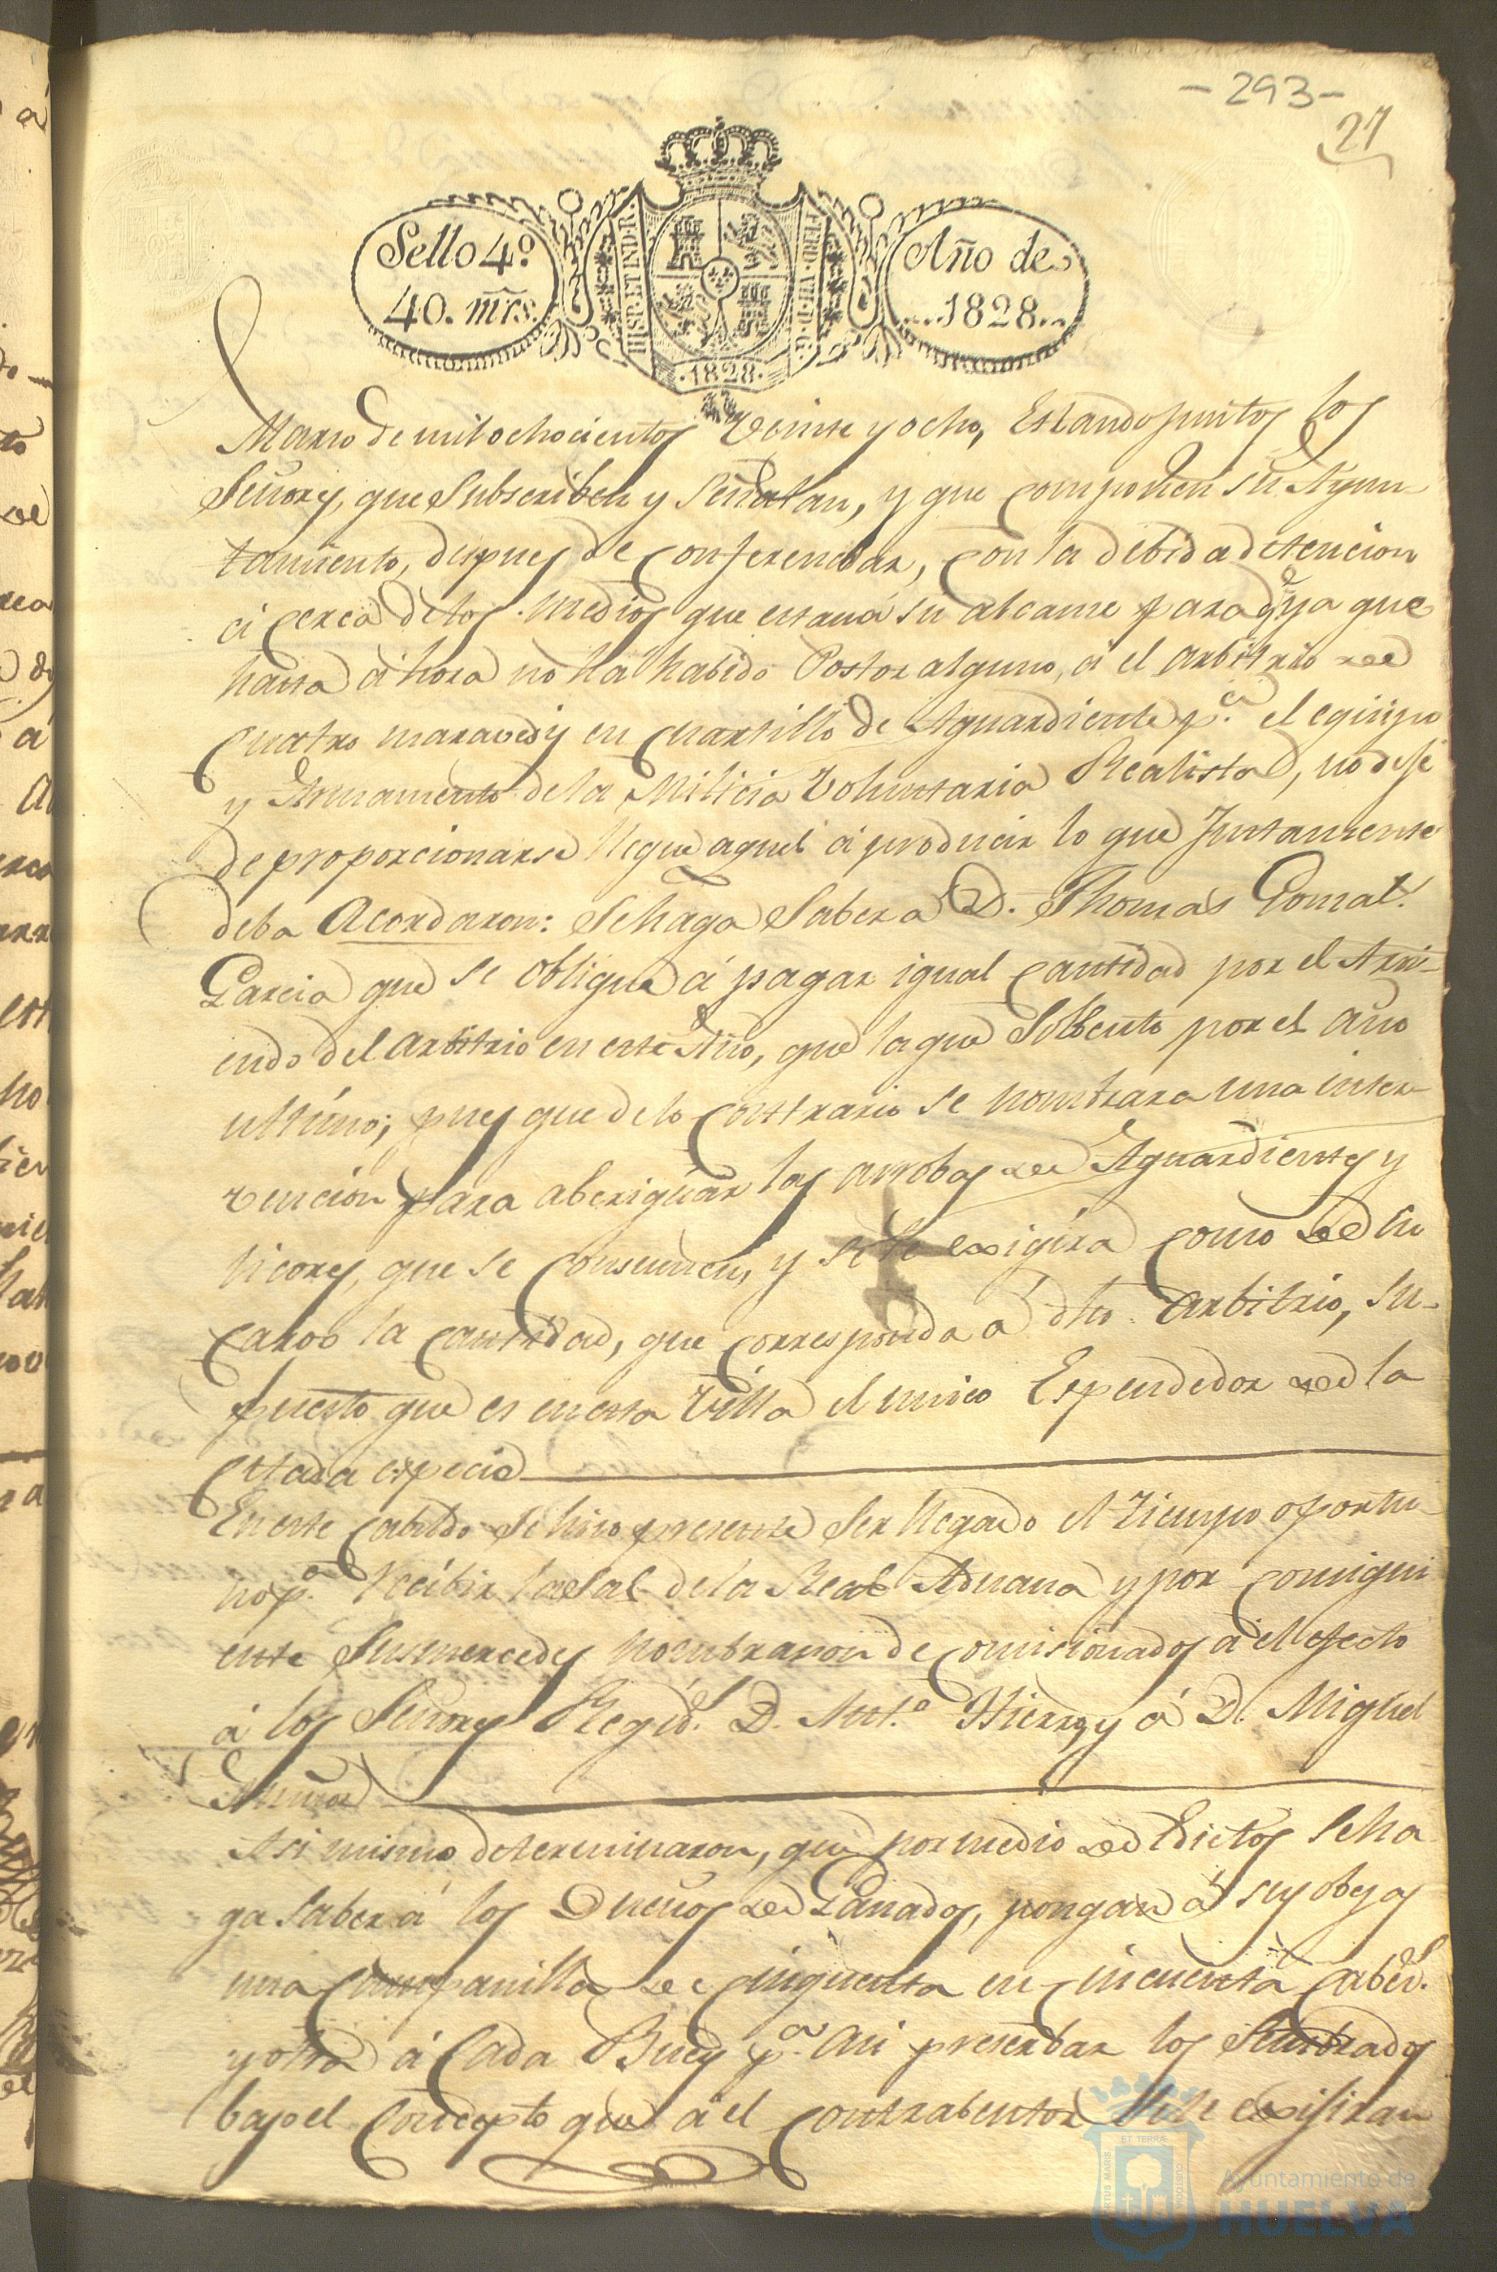 -293-
27
Sello 4º
40. mrs.
HISP. ET IND. R.
FERD. VII. D. G.
·1828·
Año de
1828
Marzo de mil ochocientos veinte y ocho, Estando juntos los
Señores, que Subscriben y Señalan, y que componen su Ayun-
tamiento, despues de conferenciar, con la debida detencion
á cerca de los medios que estan á su alcanse para q.e ya que
hasta áhora no há habido Postor alguno, á el arbitrio de
quatro maravedis en quartillo de Aguardiente p.a el equipo
y Armamento de la Milicia Voluntaria Realista, no deje
de proporcionarse llegue aquel á producir lo que Justamente
deba Acordaron: Se haga Saber a D. Thomas Gonzal.
Garcia que se obligue á pagar igual cantidad por el Arri-
endo del arbitrio en este Año, que la que Solbento por el año
ultimo; pues que de lo contrario se nombrara una inter-
vencion para aberiguar las arrobas de Aguardientes y
licores, que se consumen, y se le exigira como de su
cargo la cantidad, que corresponda a dho. arbitrio, su-
puesto que es en esta Villa el unico Expendedor de la
citada especie
En este cabildo se hizo presente Ser llegado el tiempo oportu-
no p.a recibir la Sal de la Real Aduana y por consigui
ente Susmercedes nombraron de comisionados á el efecto
á los Señores Regid.s D. Ant.o Hierro, y á D. Miguel
Asi mismo determinaron, que por medio de Edictos Se ha
ga saber á los Dueños de Ganados, pongan á sus obejas
una Campanilla de cinquenta en cincuenta Cabez.s
y otra á Cada Buey p.a asi preserbar los Sembrados
bajo el Concepto que á el contrabentor Se le exijiran
ET TERRAE
PORTUS MARIS
CUSTODIA
Ayuntamiento de
HUELVA